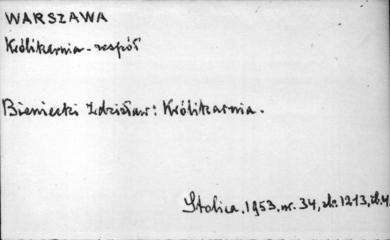 WARSZAWA
Królikarnia - zespół
Bieniecki Zdzisław: Królikarnia.
Stolica. 1953. nr. 34, str. 1213, il. 4